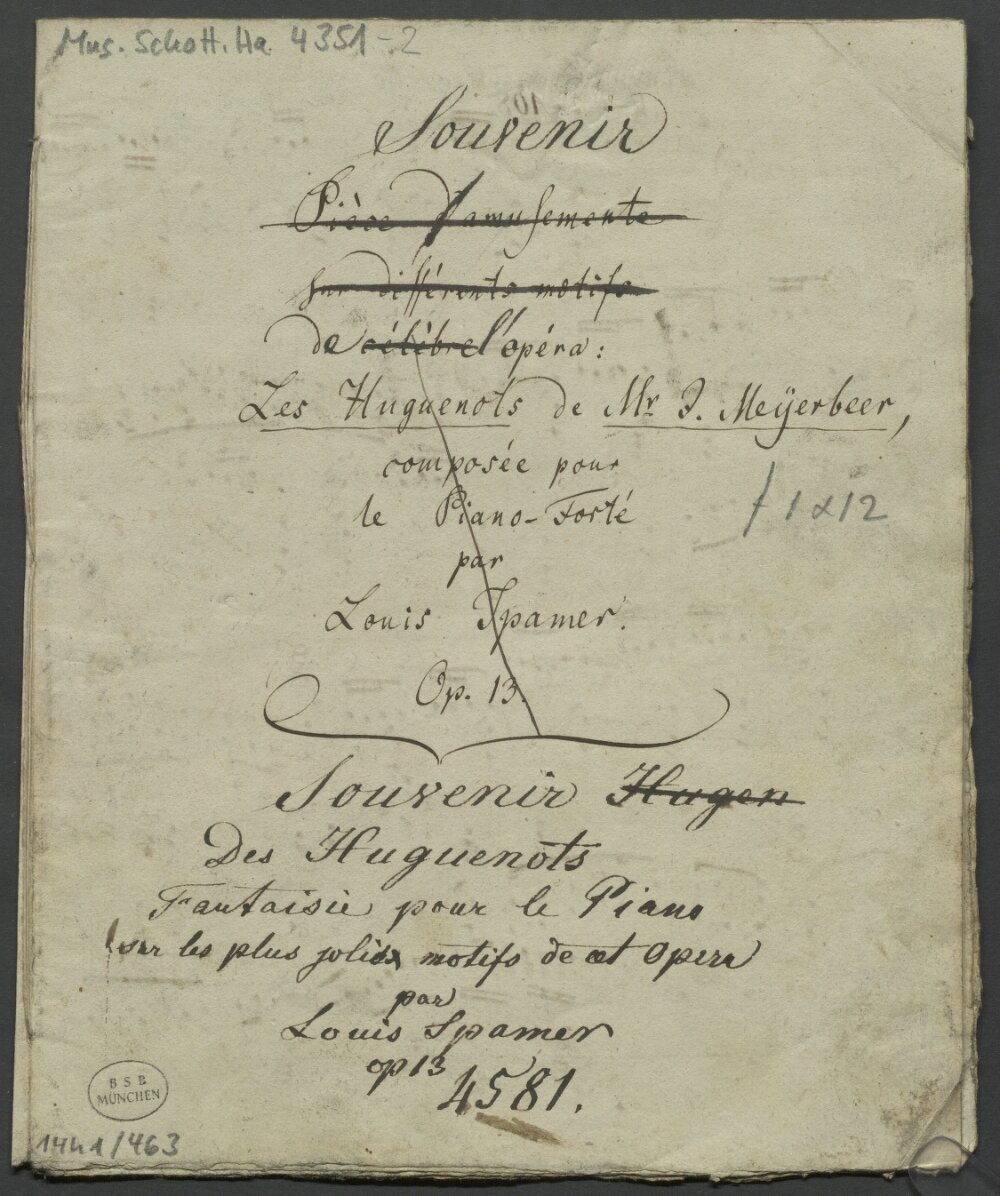 Mus. Schott. Ha 4351-2
Souvenir
Pièce d'amusemente
sur différents motifs
de célèbre l'opéra:
Les Huguenots de Mr J. Meÿerbeer,
composée pour
le Piano-Forté
par
Louis Spamer.
Op. 13.
Souvenir Hugen
Des Huguenots
Fantaisie pour le Piano
sur les plus jolies motifs de cet Opera
par
Louis Spamer
op 13
4581.
BSB
MÜNCHEN
/463